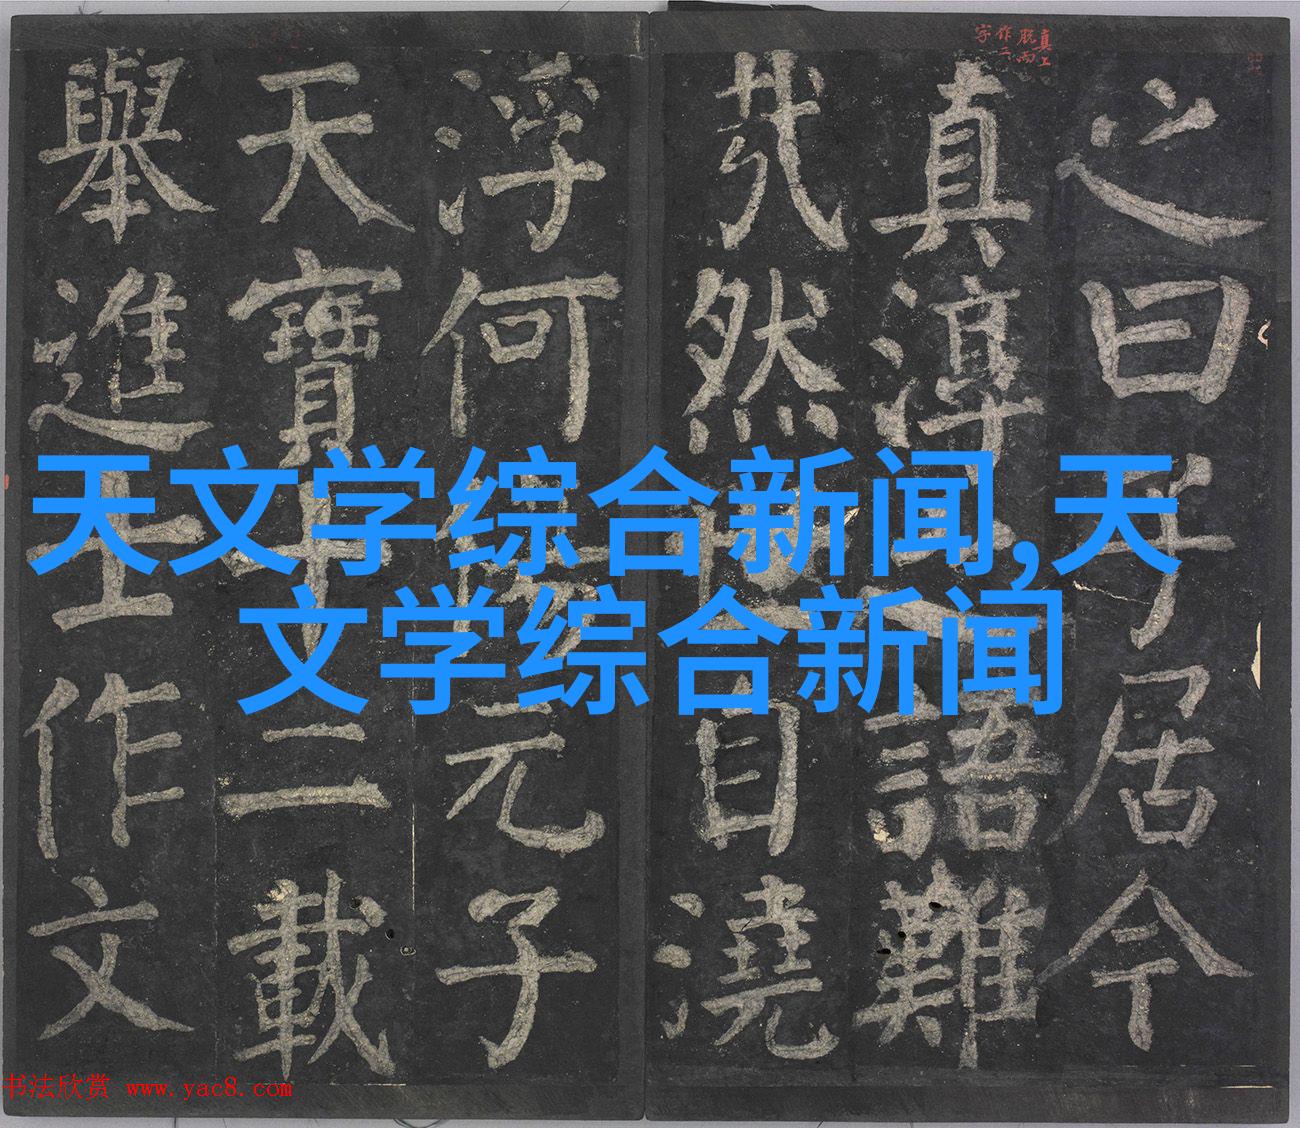 真上
脱而
作二
字
之曰子居今
真淳之語難
哉然世自澆
浮何傷元子
天寶十二載
舉進士作文
天文学综合新闻,天
文学综合新闻
书法欣赏 www.yac8.com